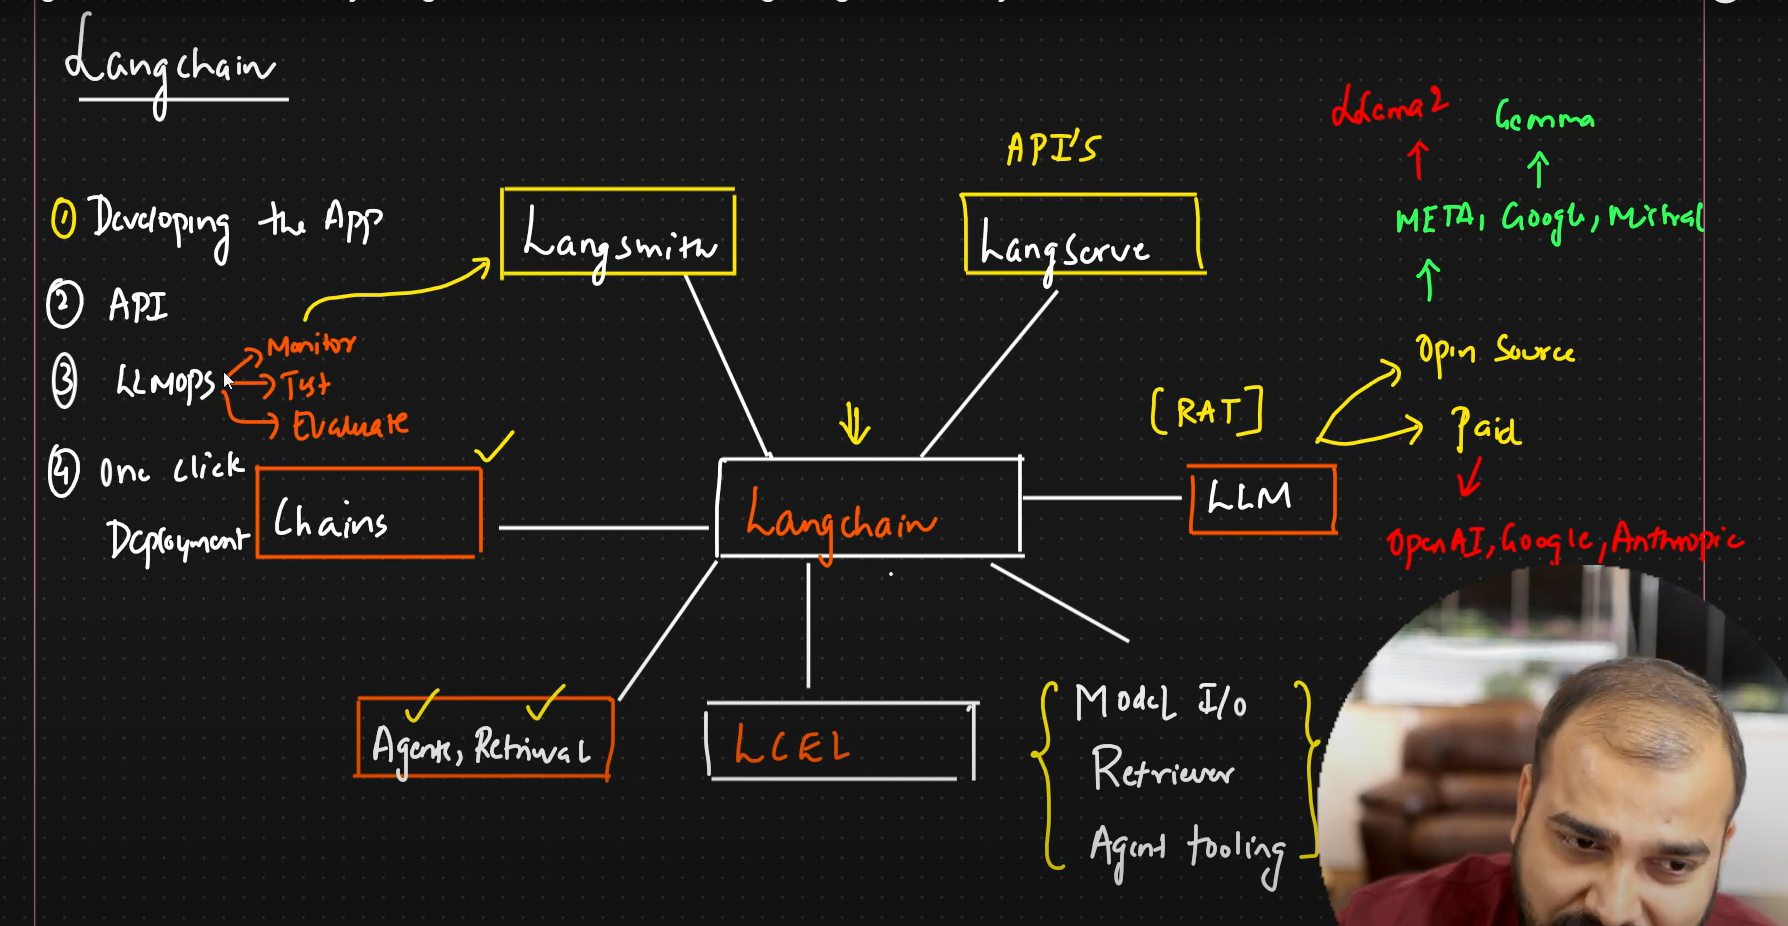 Langchain
① Developing the App
② API
③ LLMOPS
Monitor
Test
Evaluate
④ One click
Deployment
Langsmith
API's
Langserve
Chains
Langchain
[RAT]
LLM
Llama2
Gemma
META, Google, Mistral
Open Source
Paid
OpenAI, Google, Anthropic
Agents, Retrival
LCEL
Model I/O
Retriever
Agent tooling